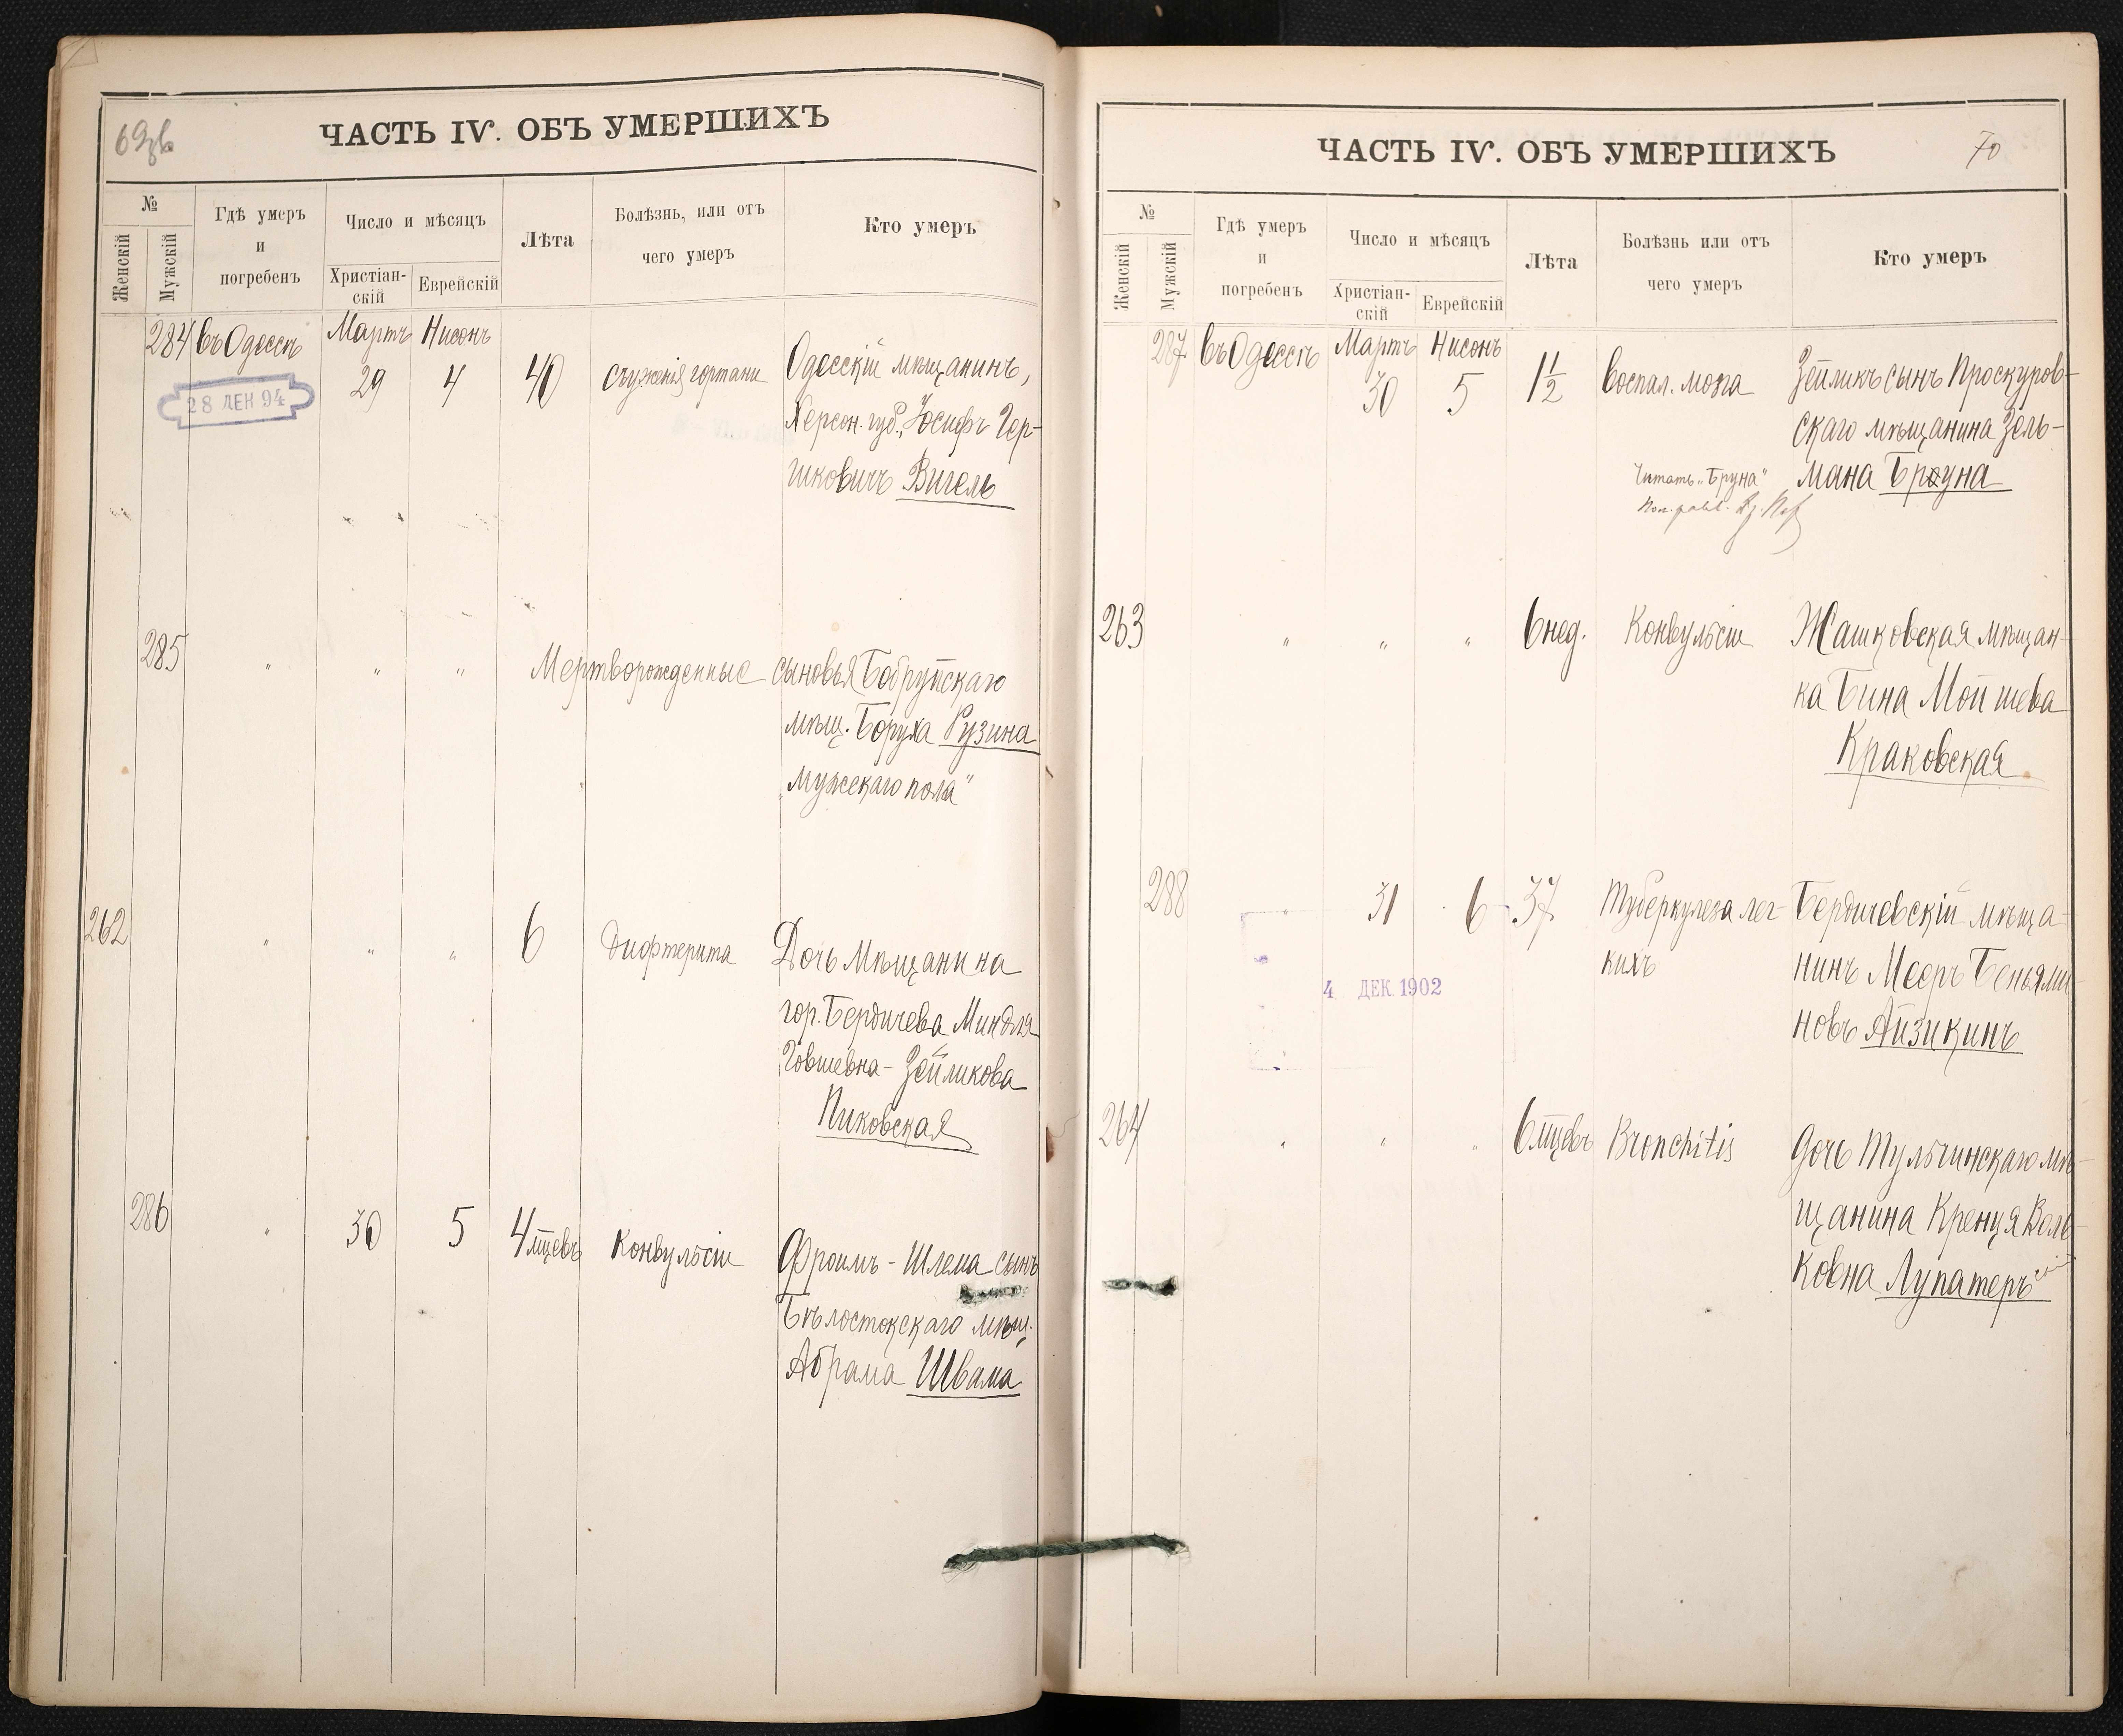 69 об
ЧАСТЬ IV. ОБЪ УМЕРШИХЪ
№
Женскій
Мужскій
Гдѣ умеръ
и
погребенъ
Число и мѣсяцъ
Христіан-
скій
Еврейскій
Лѣта
Болѣзнь, или отъ
чего умеръ
Кто умеръ
284 въ Одессѣ Мартъ Нисонъ
29 4 40 съуженія гортани Одесскій мѣщанинъ,
28 ДЕК 94
Херсон. губ., Іосифъ Гер-
шковичъ Вигель
285 " " " Мертворожденные сыновья Бобруйскаго
мѣщ. Боруха Рузина
"мужскаго пола"
262 " " " 6 дифтерита Дочь Мѣщанина
гор. Бердичева Миндля
Говшевна-Зейликова
Пиковская
286 " 30 5 4 мцевъ Конвульсіи Фроимъ-Шлема сынъ
Бѣлостокскаго мѣщ.
Абрама Швама
ЧАСТЬ IV. ОБЪ УМЕРШИХЪ
70
№
Женскій
Мужскій
Гдѣ умеръ
и
погребенъ
Число и мѣсяцъ
Христіан-
скій
Еврейскій
Лѣта
Болѣзнь или отъ
чего умеръ
Кто умеръ
287 въ Одессѣ Мартъ Нисонъ
30 5 1½ Воспал. мозга Зейликъ сынъ Проскуров-
скаго мѣщанина Зель-
мана Броуна
Читать "Бруна"
263 " " " 6 нед. Конвульсіи Жашковская мѣщан-
ка Бина Мойшева
Краковская
288 " 31 6 37 Туберкулеза лег- Бердичевскій мѣща-
кихъ нинъ Мееръ Беньями-
4 ДЕК. 1902
новъ Айзикинъ
264 " " " 6 мцевъ Bronchitis дочь Тульчинскаго мѣ-
щанина Кренця Воль-
ковна Лупатеръ